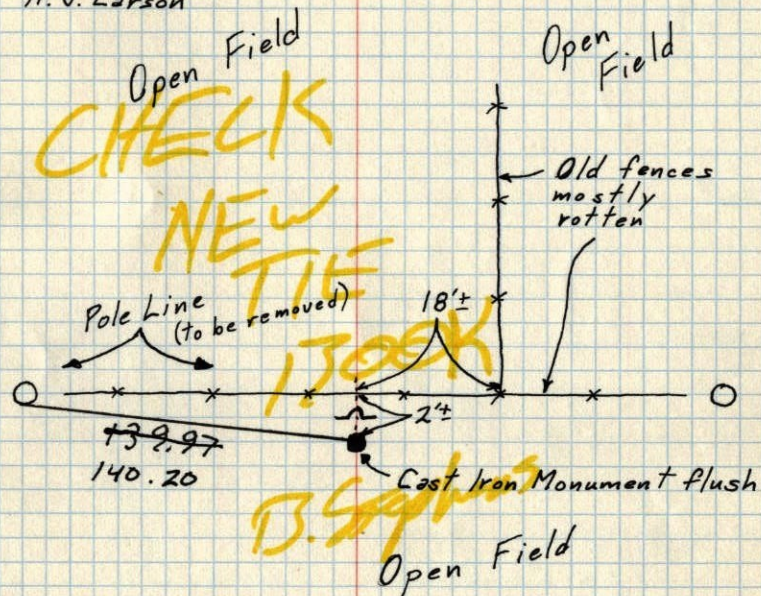 Larson
Open Field
Open
Field
CHECK
NEW
TIE
BOOK
Old fences
mostly
rotten
Pole Line
(to be removed)
18'±
2'±
139.97
140.20
Cast Iron Monument flush
B. Stephens
Open Field